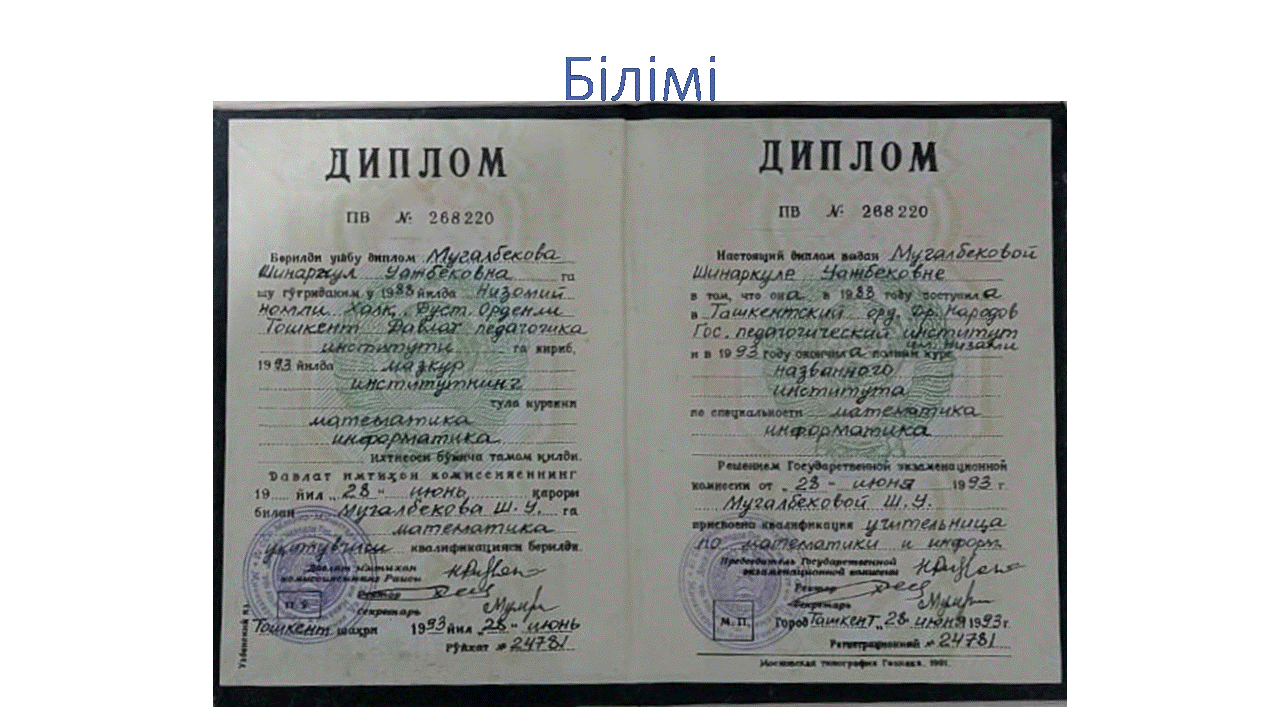 Білімі
ДИПЛОМ
ПВ № 268220
Берилди ушбу диплом Мугалбекова
Шинаркул Уатбековна га
шу тўғридаким у 1988 йилда Низомий
номли Халқ. Дуст. Орденли
Тошкент Давлат педагогика
институти га кириб,
1993 йилда мазкур
институтнинг
тула курсини
математика
информатика
ихтисоси бўйича тамом қилди.
Давлат имтиҳон комиссиясининг
19 йил „28“ июнь қарори
билан Мугалбекова Ш. У. га
математика
уқитувчиси квалификацияси берилди.
Давлат имтиҳон
комиссиясининг Раиси
Ректор
Секретарь
Тошкент шаҳри 1993 йил „28“ июнь
Рўйхат № 24781
ДИПЛОМ
ПВ № 268220
Настоящий диплом выдан Мугалбековой
Шинаркуле Уатбековне
в том, что она в 1988 году поступила
в Ташкентский орд. Др. Народов
Гос. педагогический институт
им. Низами
и в 1993 году окончила полный курс
названного
института
по специальности математика
информатика
Решением Государственной экзаменационной
комиссии от „28“ июня 1993 г.
Мугалбековой Ш. У.
присвоена квалификация учительница
по математики и информ.
Председатель Государственной
экзаменационной комиссии
Ректор
Секретарь
М. П.
Город Ташкент „28 июня 1993 г.
Регистрационный № 24781
Московская типография Гознака. 1991.